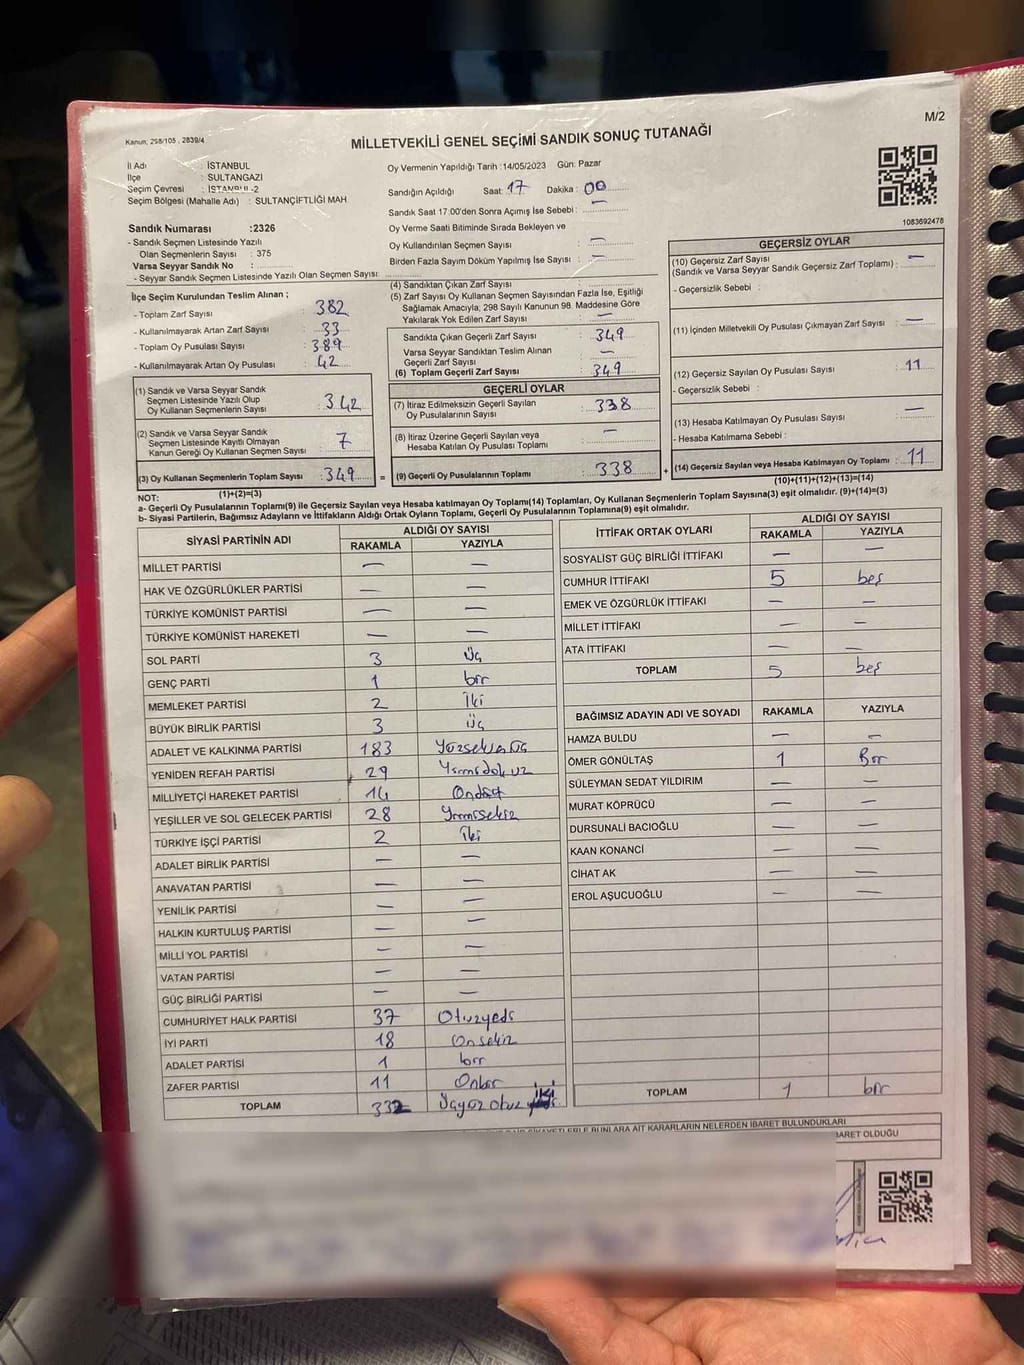 M/2
Kanun; 298/105 , 2839/4
MİLLETVEKİLİ GENEL SEÇİMİ SANDIK SONUÇ TUTANAĞI
İl Adı : İSTANBUL
İlçe : SULTANGAZİ
Seçim Çevresi : İSTANBUL-2
Seçim Bölgesi (Mahalle Adı) : SULTANÇİFTLİĞİ MAH
Sandık Numarası :2326
- Sandık Seçmen Listesinde Yazılı
Olan Seçmenlerin Sayısı : 375
Varsa Seyyar Sandık No :
- Seyyar Sandık Seçmen Listesinde Yazılı Olan Seçmen Sayısı:
Oy Vermenin Yapıldığı Tarih :14/05/2023 Gün: Pazar
Sandığın Açıldığı Saat: 17 Dakika : 00
Sandık Saat 17:00'den Sonra Açımış İse Sebebi : —
Oy Verme Saati Bitiminde Sırada Bekleyen ve
Oy Kullandırılan Seçmen Sayısı : —
Birden Fazla Sayım Döküm Yapılmış İse Sayısı : —
1083692478
İlçe Seçim Kurulundan Teslim Alınan ;
- Toplam Zarf Sayısı : 382
- Kullanılmayarak Artan Zarf Sayısı : 33
- Toplam Oy Pusulası Sayısı : 389
- Kullanılmayarak Artan Oy Pusulası : 42
(1) Sandık ve Varsa Seyyar Sandık
Seçmen Listesinde Yazılı Olup
Oy Kullanan Seçmenlerin Sayısı : 342
(2) Sandık ve Varsa Seyyar Sandık
Seçmen Listesinde Kayıtlı Olmayan
Kanun Gereği Oy Kullanan Seçmen Sayısı : 7
(3) Oy Kullanan Seçmenlerin Toplam Sayısı : 349 =
(1)+(2)=(3)
(4) Sandıktan Çıkan Zarf Sayısı :
(5) Zarf Sayısı Oy Kullanan Seçmen Sayısından Fazla İse, Eşitliği
Sağlamak Amacıyla; 298 Sayılı Kanunun 98. Maddesine Göre
Yakılarak Yok Edilen Zarf Sayısı : —
Sandıkta Çıkan Geçerli Zarf Sayısı : 349
Varsa Seyyar Sandıktan Teslim Alınan
Geçerli Zarf Sayısı : —
(6) Toplam Geçerli Zarf Sayısı : 349
GEÇERLİ OYLAR
(7) İtiraz Edilmeksizin Geçerli Sayılan
Oy Pusulalarının Sayısı : 338
(8) İtiraz Üzerine Geçerli Sayılan veya
Hesaba Katılan Oy Pusulası Toplamı : —
(9) Geçerli Oy Pusulalarının Toplamı : 338 +
GEÇERSİZ OYLAR
(10) Geçersiz Zarf Sayısı
(Sandık ve Varsa Seyyar Sandık Geçersiz Zarf Toplamı) : —
- Geçersizlik Sebebi :
(11) İçinden Milletvekili Oy Pusulası Çıkmayan Zarf Sayısı : —
(12) Geçersiz Sayılan Oy Pusulası Sayısı : 11
- Geçersizlik Sebebi :
(13) Hesaba Katılmayan Oy Pusulası Sayısı : —
- Hesaba Katılmama Sebebi :
(14) Geçersiz Sayılan veya Hesaba Katılmayan Oy Toplamı : 11
(10)+(11)+(12)+(13)=(14)
NOT:
a- Geçerli Oy Pusulalarının Toplamı(9) ile Geçersiz Sayılan veya Hesaba katılmayan Oy Toplamı(14) Toplamları, Oy Kullanan Seçmenlerin Toplam Sayısına(3) eşit olmalıdır. (9)+(14)=(3)
b- Siyasi Partilerin, Bağımsız Adayların ve İttifakların Aldığı Ortak Oyların Toplamı, Geçerli Oy Pusulalarının Toplamına(9) eşit olmalıdır.
SİYASİ PARTİNİN ADI ALDIĞI OY SAYISI
RAKAMLA YAZIYLA
MİLLET PARTİSİ — —
HAK VE ÖZGÜRLÜKLER PARTİSİ — —
TÜRKİYE KOMÜNİST PARTİSİ — —
TÜRKİYE KOMÜNİST HAREKETİ — —
SOL PARTİ 3 üç
GENÇ PARTİ 1 bir
MEMLEKET PARTİSİ 2 iki
BÜYÜK BİRLİK PARTİSİ 3 üç
ADALET VE KALKINMA PARTİSİ 183 Yüzseksenüç
YENİDEN REFAH PARTİSİ 29 Yirmidokuz
MİLLİYETÇİ HAREKET PARTİSİ 14 Ondört
YEŞİLLER VE SOL GELECEK PARTİSİ 28 Yirmisekiz
TÜRKİYE İŞÇİ PARTİSİ 2 iki
ADALET BİRLİK PARTİSİ — —
ANAVATAN PARTİSİ — —
YENİLİK PARTİSİ — —
HALKIN KURTULUŞ PARTİSİ — —
MİLLİ YOL PARTİSİ — —
VATAN PARTİSİ — —
GÜÇ BİRLİĞİ PARTİSİ — —
CUMHURİYET HALK PARTİSİ 37 Otuzyedi
İYİ PARTİ 18 Onsekiz
ADALET PARTİSİ 1 bir
ZAFER PARTİSİ 11 Onbir
TOPLAM 332 Üçyüz otuz iki
İTTİFAK ORTAK OYLARI ALDIĞI OY SAYISI
RAKAMLA YAZIYLA
SOSYALİST GÜÇ BİRLİĞİ İTTİFAKI — —
CUMHUR İTTİFAKI 5 beş
EMEK VE ÖZGÜRLÜK İTTİFAKI — —
MİLLET İTTİFAKI — —
ATA İTTİFAKI — —
TOPLAM 5 beş
BAĞIMSIZ ADAYIN ADI VE SOYADI RAKAMLA YAZIYLA
HAMZA BULDU — —
ÖMER GÖNÜLTAŞ 1 Bir
SÜLEYMAN SEDAT YILDIRIM — —
MURAT KÖPRÜCÜ — —
DURSUNALİ BACIOĞLU — —
KAAN KONANCİ — —
CİHAT AK — —
EROL AŞUCUOĞLU — —
TOPLAM 1 bir
BUNLARA AİT KARARLARIN NELERDEN İBARET BULUNDUKLARI
OLDUĞU